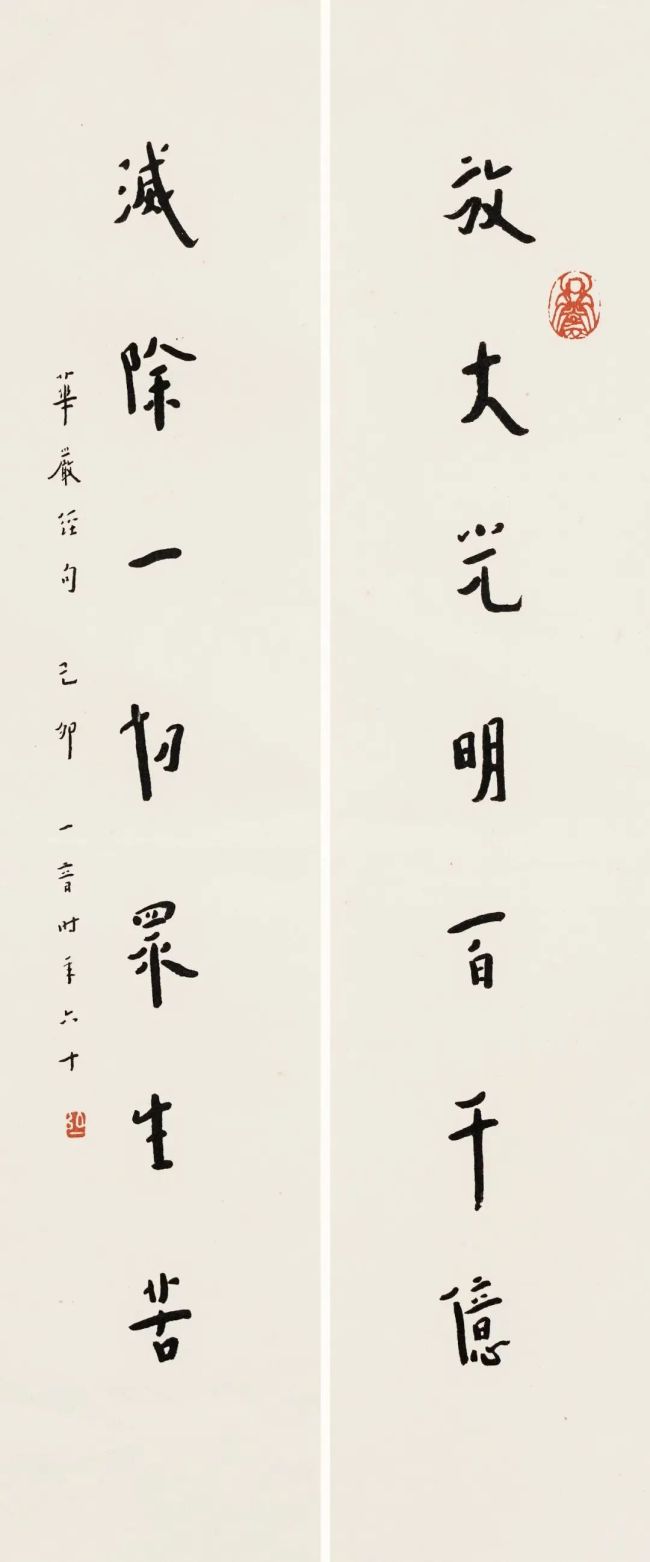 放大光明百千億
滅除一切眾生苦
華嚴經句 己卯 一音時年六十
弘一